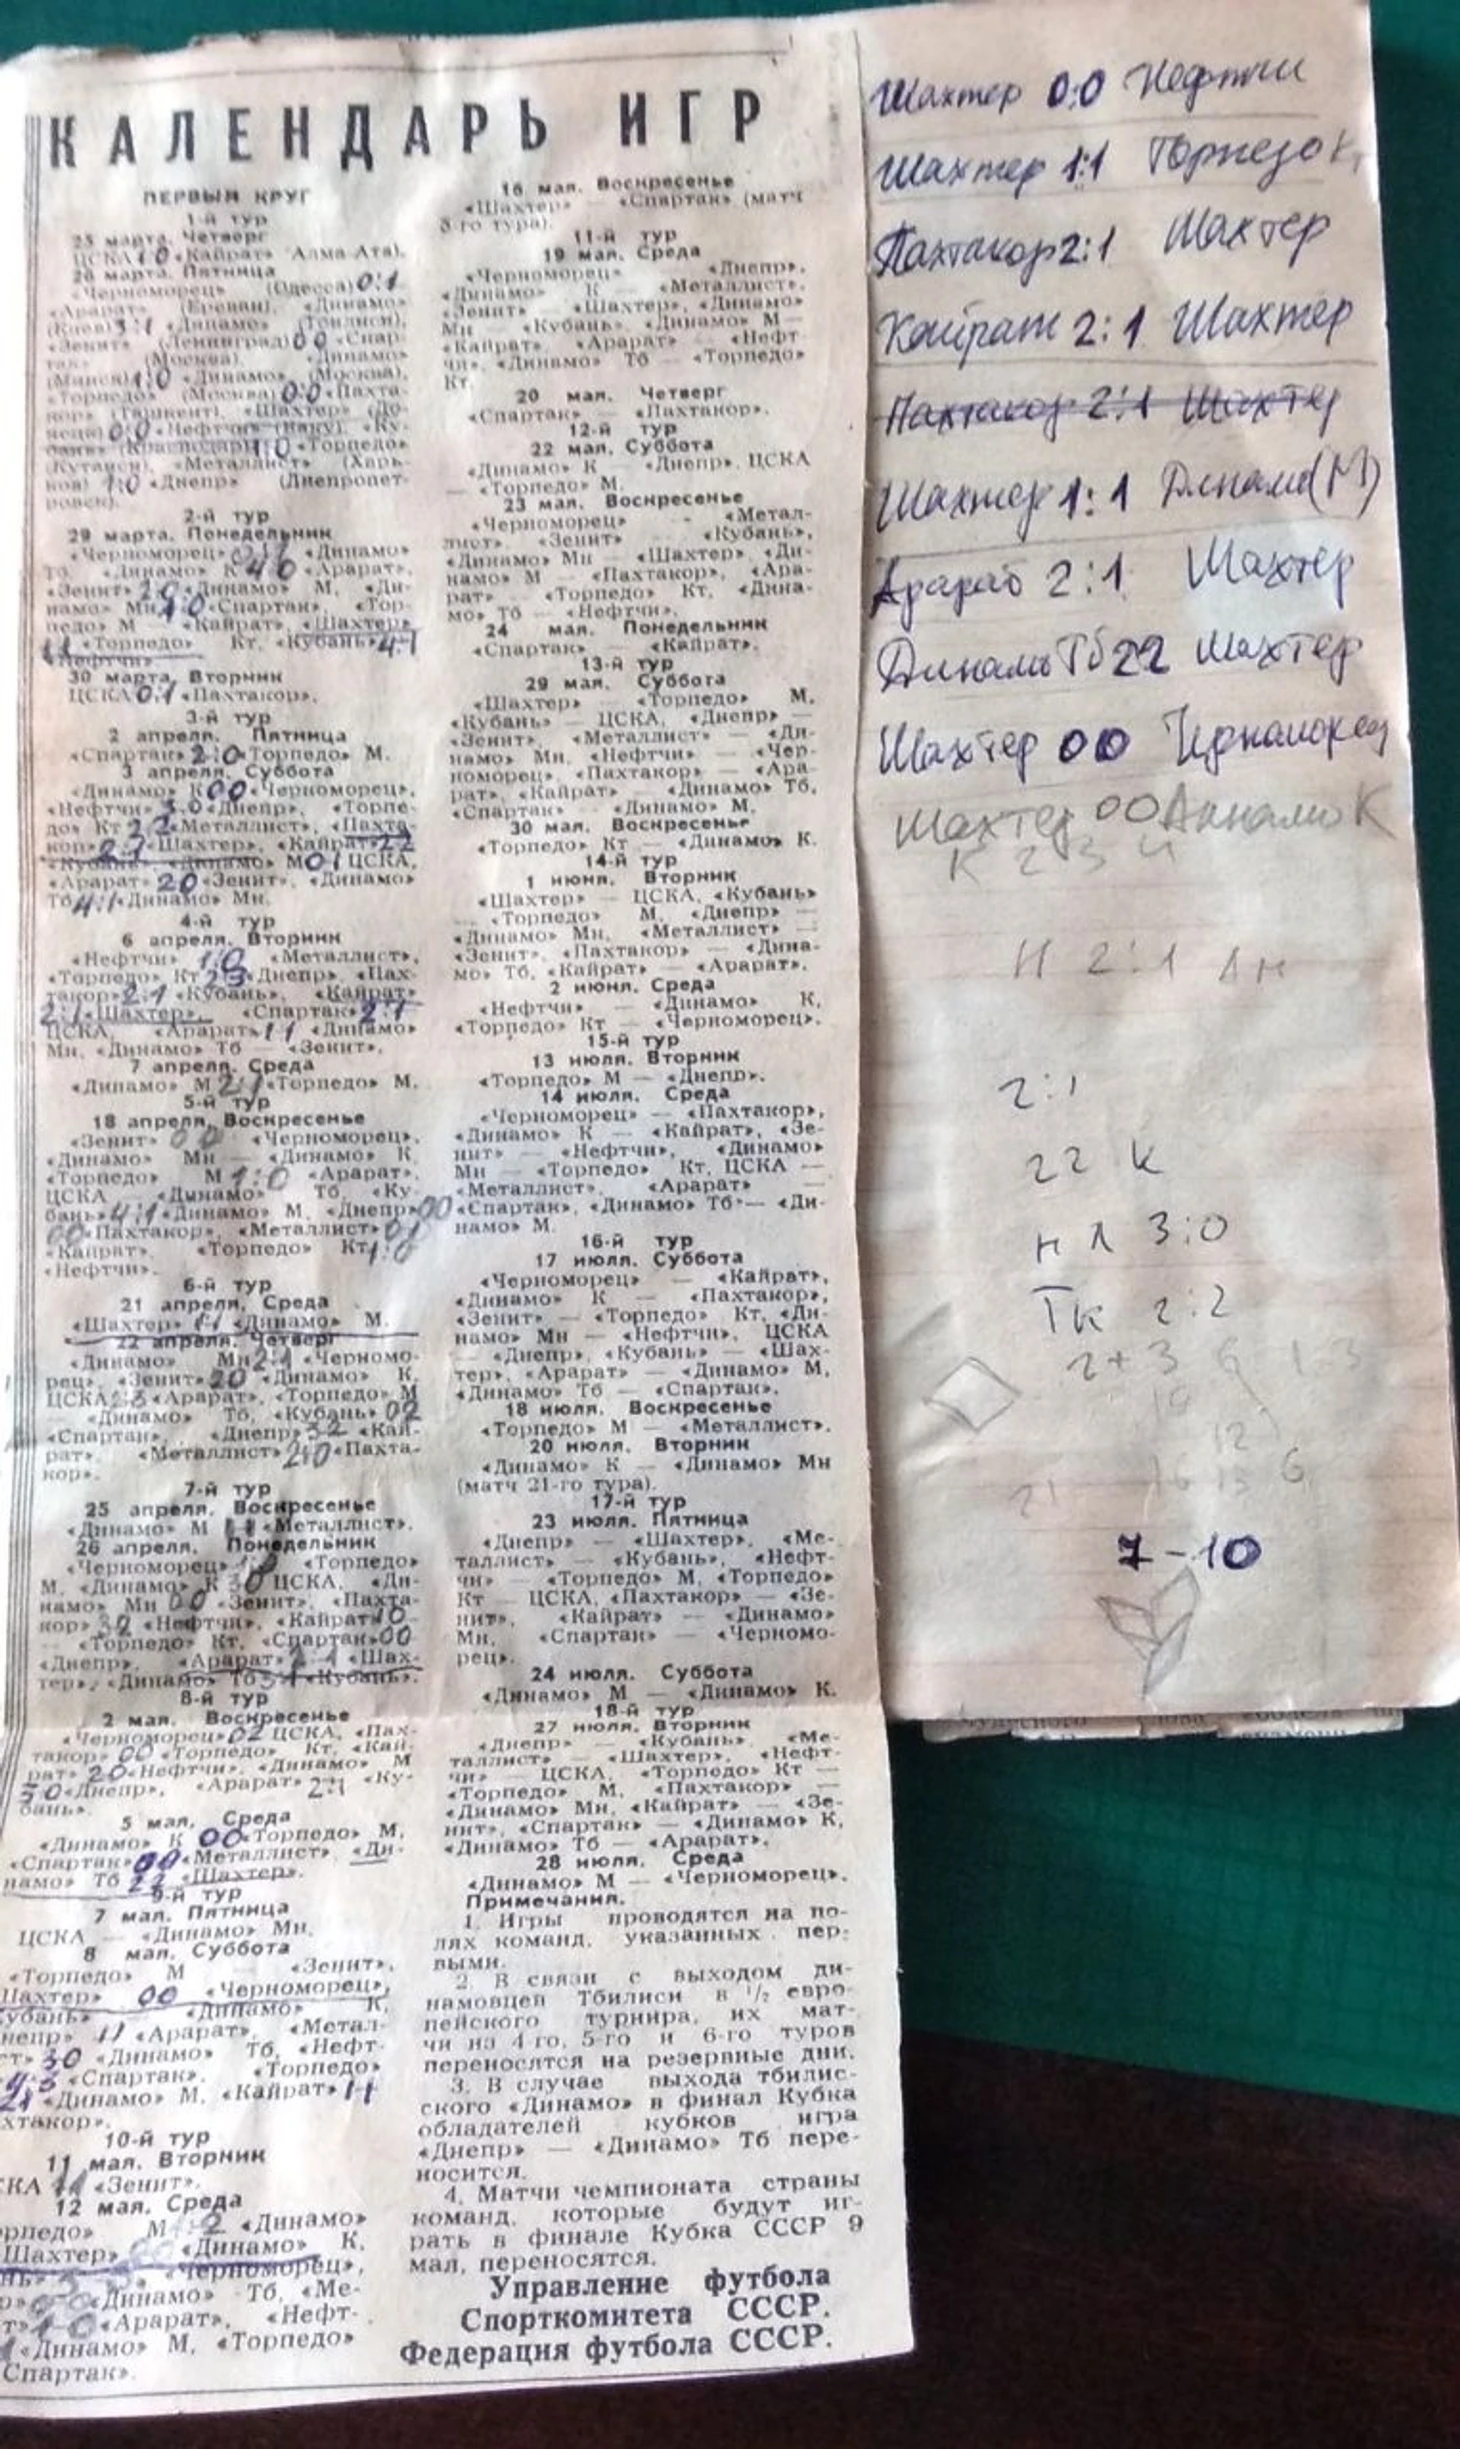 КАЛЕНДАРЬ ИГР
ПЕРВЫЙ КРУГ
1-й тур
25 марта. Четверг
ЦСКА 1:0 «Кайрат» Алма-Ата).
26 марта. Пятница
«Черноморец» (Одесса) 0:1
«Арарат» (Ереван), «Динамо»
(Киев) 3:1 «Динамо» (Тбилиси),
«Зенит» (Ленинград) 0:0 «Спар-
так» (Москва), «Динамо»
(Минск) 1:0 «Динамо» (Москва),
«Торпедо» (Москва) 0:0 «Пахта-
кор» (Ташкент), «Шахтер» (До-
нецк) 0:0 «Нефтчи» (Баку), «Ку-
бань» (Краснодар) 1:0 «Торпедо»
(Кутаиси), «Металлист» (Харь-
ков) 1:0 «Днепр» (Днепропет-
ровск).
2-й тур
29 марта. Понедельник
«Черноморец» «Динамо»
Тб, «Динамо» К 4:0 «Арарат»,
«Зенит» 2:0 «Динамо» М, «Ди-
намо» Мн 1:0 «Спартак», «Тор-
педо» М — «Кайрат», «Шахтер»
1:1 «Торпедо» Кт, «Кубань» 4:1
«Нефтчи».
30 марта. Вторник
ЦСКА 0:1 «Пахтакор».
3-й тур
2 апреля. Пятница
«Спартак» 2:0 «Торпедо» М.
3 апреля. Суббота
«Динамо» К 00 «Черноморец»,
«Нефтчи» 3:0 «Днепр», «Торпе-
до» Кт 2:2 «Металлист», «Пахта-
кор» 2:1 «Шахтер», «Кайрат» 22
«Кубань», «Динамо» М 0:1 ЦСКА,
«Арарат» 20 «Зенит», «Динамо»
Тб 4:1 «Динамо» Мн.
4-й тур
6 апреля. Вторник
«Нефтчи» 1:0 «Металлист»,
«Торпедо» Кт 2:3 «Днепр», «Пах-
такор» 2:1 «Кубань», «Кайрат»
2:1 «Шахтер», «Спартак» 2:1
ЦСКА, «Арарат» 1:1 «Динамо»
Мн, «Динамо» Тб — «Зенит».
7 апреля. Среда
«Динамо» М 2:1 «Торпедо» М.
5-й тур
18 апреля. Воскресенье
«Зенит» 00 «Черноморец»,
«Динамо» Мн — «Динамо» К,
«Торпедо» М 1:0 «Арарат»,
ЦСКА — «Динамо» Тб, «Ку-
бань» 4:1 «Динамо» М, «Днепр» 00
00 «Пахтакор», «Металлист» 01
«Кайрат», «Торпедо» Кт 1:0
«Нефтчи».
6-й тур
21 апреля. Среда
«Шахтер» 1:1 «Динамо» М.
22 апреля. Четверг
«Динамо» Мн 2:1 «Черномо-
рец», «Зенит» 20 «Динамо» К,
ЦСКА 2:3 «Арарат», «Торпедо» М
— «Динамо» Тб, «Кубань» 02
«Спартак», «Днепр» 3:2 «Кай-
рат», «Металлист» 2:0 «Пахта-
кор».
7-й тур
25 апреля. Воскресенье
«Динамо» М 1:1 «Металлист».
26 апреля. Понедельник
«Черноморец» «Торпедо»
М, «Динамо» К 30 ЦСКА, «Ди-
намо» Мн 00 «Зенит», «Пахта-
кор» 32 «Нефтчи», «Кайрат» 10
— «Торпедо» Кт, «Спартак» 00
«Днепр», «Арарат» 2:1 «Шах-
тер», «Динамо» Тб 3:1 «Кубань».
8-й тур
2 мая. Воскресенье
«Черноморец» 02 ЦСКА, «Пах-
такор» 00 «Торпедо» Кт, «Кай-
рат» 2:0 «Нефтчи», «Динамо» М
30 «Днепр», «Арарат» 2:1 «Ку-
бань».
5 мая. Среда
«Динамо» К 00 «Торпедо» М,
«Спартак» 00 «Металлист», «Ди-
намо» Тб 22 «Шахтер».
9-й тур
7 мая. Пятница
ЦСКА — «Динамо» Мн.
8 мая. Суббота
«Торпедо» М — «Зенит»,
Шахтер» 00 «Черноморец»,
убань» — «Динамо» К,
непр» 11 «Арарат», «Метал-
ст» 30 «Динамо» Тб, «Нефт-
4:3 «Спартак», «Торпедо»
21 «Динамо» М, «Кайрат» 1-1
хтакор».
10-й тур
11 мая. Вторник
СКА 11 «Зенит».
12 мая. Среда
орпедо» М 1:2 «Динамо»
Шахтер» 00 «Динамо» К,
нь» «Черноморец»,
р» 0-0 «Динамо» Тб, «Ме-
т» 1-0 «Арарат», «Нефт-
«Динамо» М, «Торпедо»
Спартак».
16 мая. Воскресенье
«Шахтер» — «Спартак» (матч
8-го тура).
11-й тур
19 мая. Среда
«Черноморец» — «Днепр»,
«Динамо» К — «Металлист»,
«Зенит» — «Шахтер», «Динамо»
Мн — «Кубань», «Динамо» М —
«Кайрат», «Арарат» — «Нефт-
чи», «Динамо» Тб — «Торпедо»
Кт.
20 мая. Четверг
«Спартак» — «Пахтакор».
12-й тур
22 мая. Суббота
«Динамо» К — «Днепр», ЦСКА
— «Торпедо» М.
23 мая. Воскресенье
«Черноморец» — «Метал-
лист», «Зенит» — «Кубань»,
«Динамо» Мн — «Шахтер», «Ди-
намо» М — «Пахтакор», «Ара-
рат» — «Торпедо» Кт, «Дина-
мо» Тб — «Нефтчи».
24 мая. Понедельник
«Спартак» — «Кайрат».
13-й тур
29 мая. Суббота
«Шахтер» — «Торпедо» М,
«Кубань» — ЦСКА, «Днепр» —
«Зенит», «Металлист» — «Ди-
намо» Мн, «Нефтчи» — «Чер-
номорец», «Пахтакор» — «Ара-
рат», «Кайрат» — «Динамо» Тб,
«Спартак» — «Динамо» М.
30 мая. Воскресенье
«Торпедо» Кт — «Динамо» К.
14-й тур
1 июня. Вторник
«Шахтер» — ЦСКА, «Кубань»
— «Торпедо» М, «Днепр» —
«Динамо» Мн, «Металлист» —
«Зенит», «Пахтакор» — «Дина-
мо» Тб, «Кайрат» — «Арарат».
2 июня. Среда
«Нефтчи» — «Динамо» К,
«Торпедо» Кт — «Черноморец».
15-й тур
13 июля. Вторник
«Торпедо» М — «Днепр».
14 июля. Среда
«Черноморец» — «Пахтакор»,
«Динамо» К — «Кайрат», «Зе-
нит» — «Нефтчи», «Динамо»
Мн — «Торпедо» Кт, ЦСКА —
«Металлист», «Арарат» —
«Спартак», «Динамо» Тб — «Ди-
намо» М.
16-й тур
17 июля. Суббота
«Черноморец» — «Кайрат»,
«Динамо» К — «Пахтакор»,
«Зенит» — «Торпедо» Кт, «Ди-
намо» Мн — «Нефтчи», ЦСКА
— «Днепр», «Кубань» — «Шах-
тер», «Арарат» — «Динамо» М,
«Динамо» Тб — «Спартак».
18 июля. Воскресенье
«Торпедо» М — «Металлист».
20 июля. Вторник
«Динамо» К — «Динамо» Мн
(матч 21-го тура).
17-й тур
23 июля. Пятница
«Днепр» — «Шахтер», «Ме-
таллист» — «Кубань», «Нефт-
чи» — «Торпедо» М, «Торпедо»
Кт — ЦСКА, «Пахтакор» — «Зе-
нит», «Кайрат» — «Динамо»
Мн, «Спартак» — «Черномо-
рец».
24 июля. Суббота
«Динамо» М — «Динамо» К.
18-й тур
27 июля. Вторник
«Днепр» — «Кубань», «Ме-
таллист» — «Шахтер», «Нефт-
чи» — ЦСКА, «Торпедо» Кт —
«Торпедо» М, «Пахтакор» —
«Динамо» Мн, «Кайрат» — «Зе-
нит», «Спартак» — «Динамо» К,
«Динамо» Тб — «Арарат».
28 июля. Среда
«Динамо» М — «Черноморец».
Примечания.
1. Игры проводятся на по-
лях команд, указанных пер-
выми.
2. В связи с выходом ди-
намовцев Тбилиси в 1/2 евро-
пейского турнира, их мат-
чи из 4-го, 5-го и 6-го туров
переносятся на резервные дни.
3. В случае выхода тбилис-
ского «Динамо» в финал Кубка
обладателей кубков игра
«Днепр» — «Динамо» Тб пере-
носится.
4. Матчи чемпионата страны
команд, которые будут иг-
рать в финале Кубка СССР 9
мая, переносятся.
Управление футбола
Спорткомитета СССР.
Федерация футбола СССР.
Шахтер 0:0 Нефтчи
Шахтер 1:1 Торпедо Кт
Пахтакор 2:1 Шахтер
Кайрат 2:1 Шахтер
Пахтакор 2:1 Шахтер
Шахтер 1:1 Динамо (М)
Арарат 2:1 Шахтер
Динамо Тб 22 Шахтер
Шахтер 00 Черноморец
Шахтер 00 Динамо К
К 2 3 4
Н 2:1
2:1
22 К
3:0
Тк 2:2
2+3 6 1 3
12
6
7-10